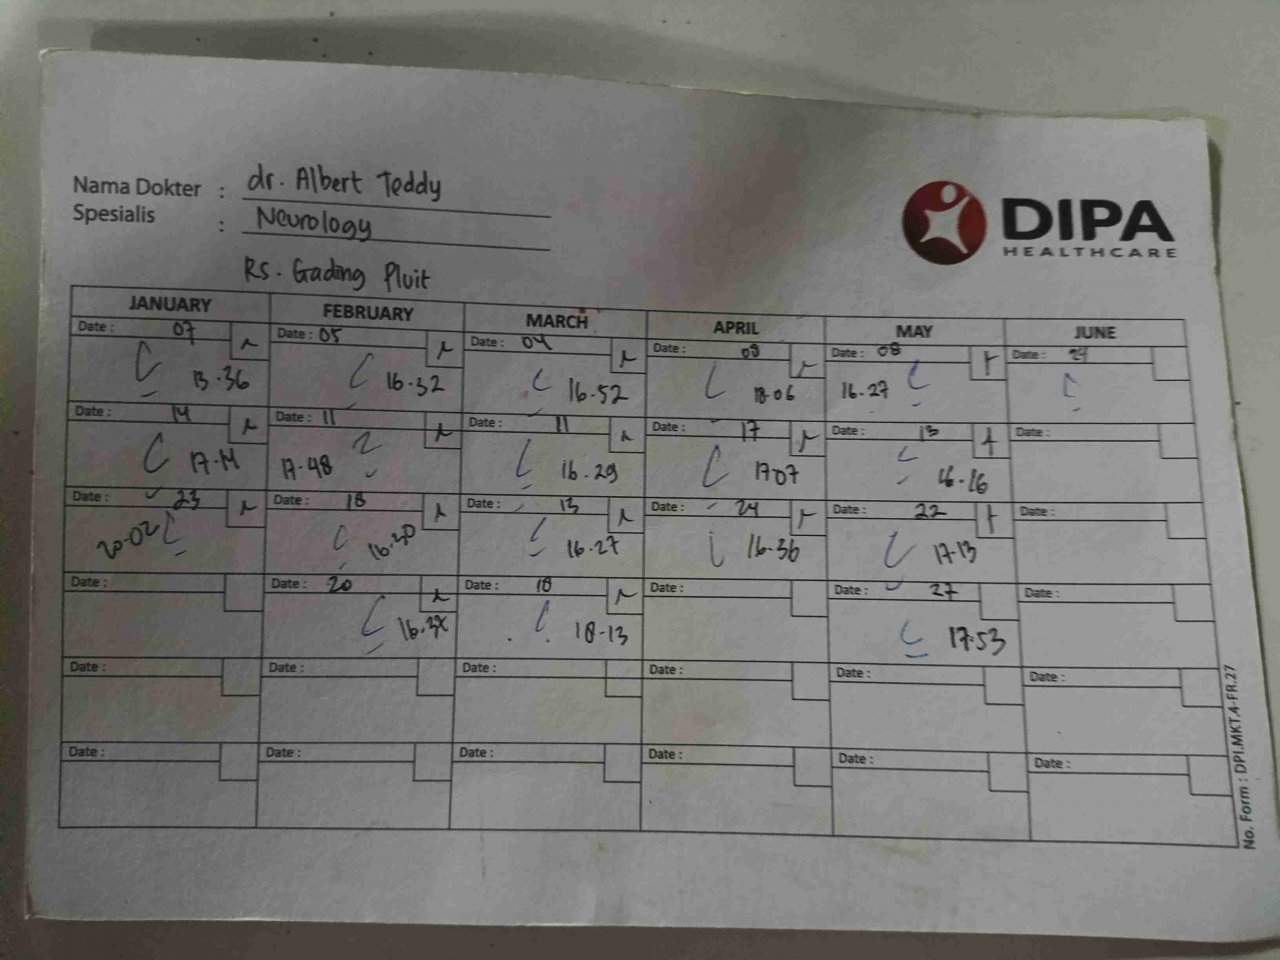 Nama Dokter : dr. Albert Teddy
Spesialis : Neurology
Rs. Gading Pluit
DIPA
HEALTHCARE
JANUARY FEBRUARY MARCH APRIL MAY JUNE
Date : 07 Date : 05 Date : 04 Date : 03 Date : 08 Date :
13-36 16-32 16-52 18-06 16-27
Date : 14 Date : 11 Date : 11 Date : 17 Date : 13 Date :
17-48 16-29 1707 16-16
Date : 23 Date : 18 Date : 13 Date : 24 Date : 22 Date :
20-02 16-30 16-27 16-36 17-13
Date : Date : 20 Date : 18 Date : Date : 27 Date :
18-13 17-53
Date : Date : Date : Date : Date : Date :
Date : Date : Date : Date : Date : Date :
No. Form : DPI.MKT.4-FR.27